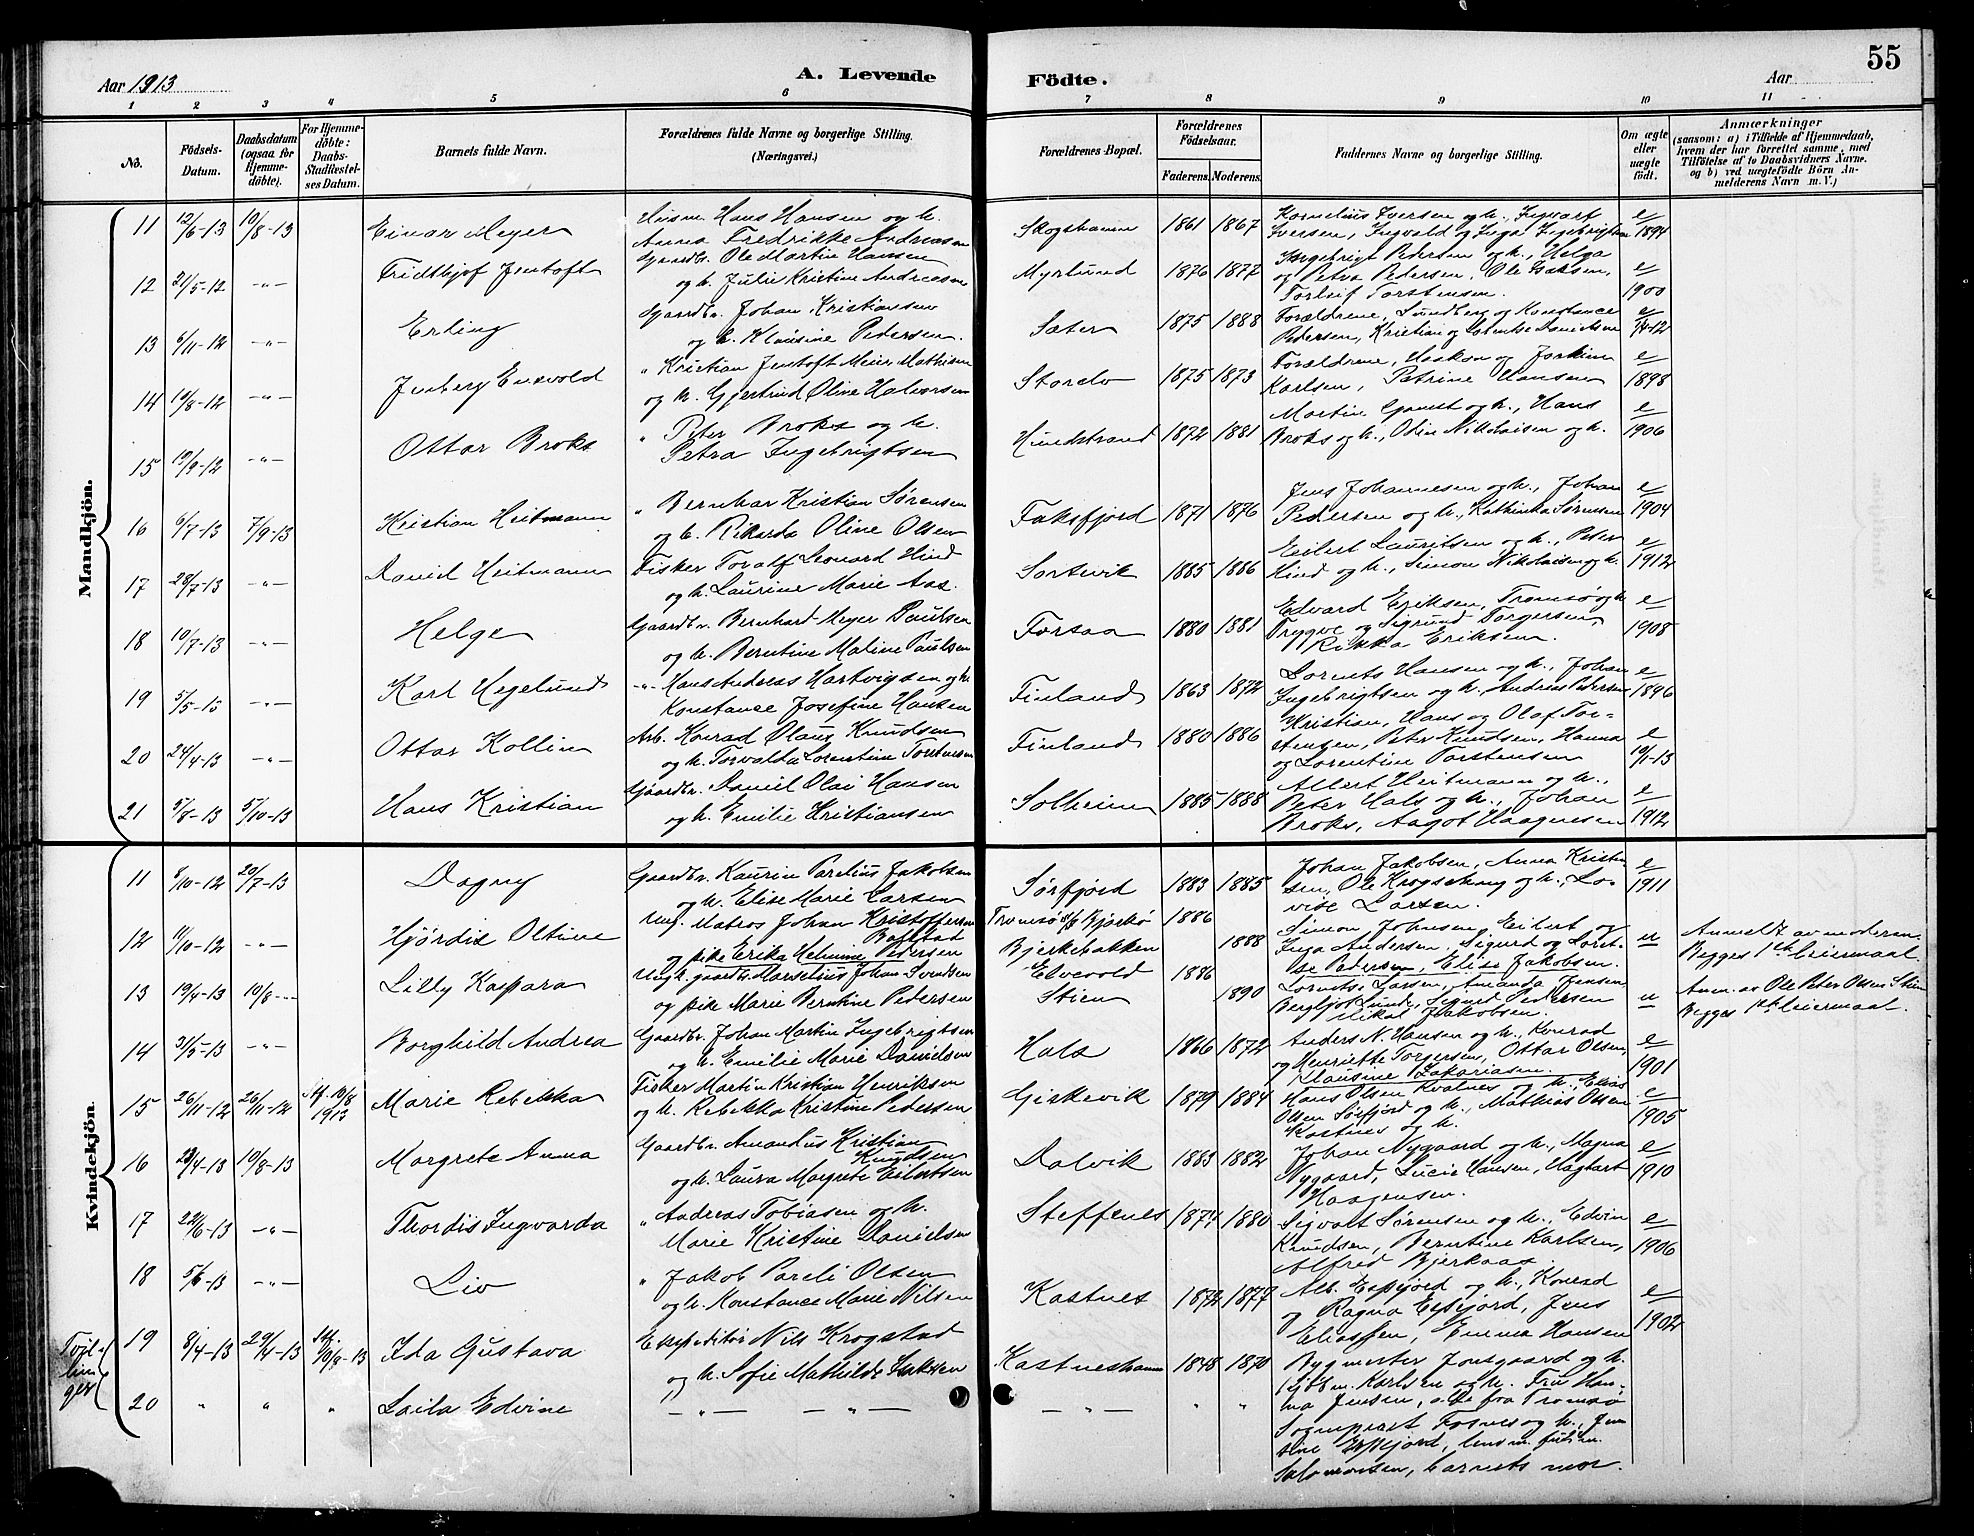 55
Aar 1913
A. Levende
Födte.
Aar
1 2 3 4 5 6 7 8 9 10 11
No.
Födsels-Datum.
Daabsdatum (ogsaa for Hjemmedöbte).
For Hjemmedöbte: Daabs-Stadfæstelses Datum.
Barnets fulde Navn.
Forældrenes fulde Navne og borgerlige Stilling.
(Næringsvei.)
Forældrenes Bopæl.
Forældrenes Födselsaar.
Faderens. Moderens.
Faddernes Navne og borgerlige Stilling.
Om ægte eller uægte födt.
Anmærkninger
(saasom: a) i Tilfælde af Hjemmedaab, hvem der har forrettet samme, med Tilföielse af to Daabsvidners Navne. og b) ved uægtefödte Börn Anmelderens Navn m. V.)
Mandkjön.
11 12/6-13 10/8-13 Einar Meyer
Husm. Hans Hansen og h.
Anna Fredrikke Andreasen
Skogshamn 1861 1867
Kornelius Iversen og h., Ingvart
Iversen, Ingvald og Inga Ingebrigtsen
e/1894
12 21/5-12 -"- Fridthjof Jentoft
Gaardbr. Ole Martin Hansen
og h. Julie Kristine Andreasen
Myrlund 1876 1877
Ingebrigt Pedersen og h., Helga
og Petra Pedersen, Ole Isaksen,
Torleif Torstensen.
e/1900
13 6/11-12 -"- Erling
Gaardbr. Johan Kristiansen
og h. Klausine Pedersen.
Sæter 1875 1888
Forældrene, Lundberg og Konstance
Pedersen, Kristian og Danielsen
e
14 19/8-12 -"- Jenberg Enevold
" Kristian Jentoft Meier Mathisen
og h. Gjertrud Oline Halvorsen
Storelv 1875 1873
Forældrene, Haakon og Joakim
Karlsen, Petrine Hansen
e/1898
15 19/9-12 -"- Ottar Broks
" Peter Broks og h.
Petra Ingebrigtsen
Hundstrand 1872 1881
Martin Gamst og h., Hans
Broks og h., Odin Nikolaisen og h.
e/1906
16 6/7-13 7/9-13 Kristian Heitmann
" Bernhar Kristian Sørensen
og h. Rikarda Oline Olsen
Faksfjord 1871 1876
Jens Johannesen og h., Johan
Pedersen og h., Kathinka Sørensen
e/1904
17 28/7-13 -"- David Heitmann
Fisker Toralf Leonard Hind
og h. Laurine Marie Aas.
Sortevik 1885 1886
Eilert Lauritsen og h., Peter
Hind og h., Simon Nikolaisen og h.
e/1912
18 10/7-13 -"- Helge
Gaardbr. Bernhard Meyer Paulsen
og h. Berntine Maline Paulsen
Forsaa 1880 1881
Edvard Eriksen, Tromsø og h.
Trygve og Sigrund Torgersen,
Rikka Eriksen.
e/1908
19 5/5-13 -"- Karl Hegelund
-"- Hans Andreas Hartvigsen og h.
Konstance Josefine Hansen
Finland 1863 1872
Lorents Hansen og h., Johan
Ingebrigtsen og h., Andreas Pedersen
e/1896
20 24/4-13 -"- Ottar Kollin
Arb. Konrad Olaus Knudsen
og h. Torvalda Lorentine Torstensen
Finland 1880 1886
Kristian, Hans og Olaf Tor-
stensen, Peter Knudsen, Hanna
og Lorentine Torstensen
e
21 5/8-13 5/10-13 Hans Kristian
Gaardbr. Daniel Olai Hansen
og h. Emilie Kristiansen
Solheim 1885 1888
Albert Heitmann og h.,
Peter Hals og h., Johan
Broks, Aagot Haagensen
e/1912
Kvindekjön.
11 8/10-12 20/7-13 Dagny
Gaardbr. Kaurin Parelius Jakobsen
og h. Elise Marie Larsen
Sørfjord 1883 1885
Johan Jakobsen, Anna Kristen-
sen, Ole Krogseng og h., Lo-
vise Larsen.
e/1911
12 11/10-12 -"- Hjördis Oltine
Ung. Matros Johan Kristoffersen
Balstad
og pike Erika Helmine Pedersen
Tromsø Bjerkø 1886
Bjerkebakken 1888
Simon Johnsen, Eilert og
Inga Andersen, Sigurd og
Pedersen, Elise Jakobsen.
u
Anmeldt av moderen.
Begges 1ste leiermaal.
13 19/4-13 10/8 -"- Lilly Kaspara
Ungk. gaardbr. Marselius Johan Svendsen
og pike Marie Berntine Pedersen
Elvevold 1886
Stien 1890
Lornts Larsen, Amanda Jensen
Bergljot Lund, Sigurd Pedersen
Mikal Jakobsen.
u
Anm. av Ole Peter Olsen Stien
Begges 1ste leiermaal.
14 31/5-13 -"- Borghild Andrea
Gaardbr. Johan Martin Ingebrigtsen
og h. Emilie Marie Danielsen
Hals 1866 1872
Anders N. Hansen og h., Konrad
og Henriette Torgersen, Ottar Olsen,
Klausine Zakariasen.
e/1901
15 26/11-12 26/11-12 Stf. 10/8 1913 Marie Rebekka
Fisker Martin Kristian Henriksen
og h. Rebekka Kristine Pedersen
Giskevik 1879 1884
Hans Olsen Kvalnes og h., Elias
Olsen Sørfjord og h., Mathias Olsen
Kastnes og h.
e/1905
16 23/4-13 10/8-13 Margrete Anna
Gaardbr. Amandus Kristian
Knudsen
og h. Laura Margrete Eilertsen
Dalvik 1883 1882
Johan Nygaard og h., Magna
Nygaard, Lucie Hansen, Hagbart
Haagensen.
e/1910
17 22/6-13 -"- Thordis Ingvarda
" Andreas Tobiasen og h.
Marie Kristine Danielsen
Steffenes 1874 1880
Sigvart Sørensen og h., Edvin
Knudsen, Berntine Karlsen,
Alfred Bjerkaas.
e/1906
18 5/6-13 -"- Liv
" Jakob Pareli Olsen
og h. Konstance Marie Nilsen
Kastnes 1872 1877
Alb. Espejord og h., Konrad
og Ragna Espejord, Jens
Eliassen, Emma Hansen
e/1902
Tvillinger
19 8/4-13 29/4-13 Stf. 10/8-13 Ida Gustava
Ekspeditör Nils Krogstad
og h. Sofie Mathilde Isaksen
Kastneshamn 1848 1870
Bygmester Jonsgaard og h.
Karlsen og h. Fru Han-
na Jensen, alle fra Tromsø
20 " " " Laila Edvine
-"- -"-
-"- " "
Sogneprest Fosnes og h., Jen-
sine Espejord, lensm.
Salomonsen, barnets mor.